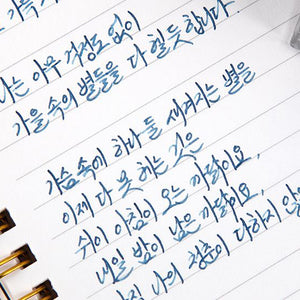 나는 아무 걱정도 없이
가을 속의 별들을 다 헬 듯합니다.
가슴 속에 하나 둘 새겨지는 별을
이제 다 못 헤는 것은
쉬이 아침이 오는 까닭이요,
내일 밤이 남은 까닭이요,
아직 나의 청춘이 다하지 않